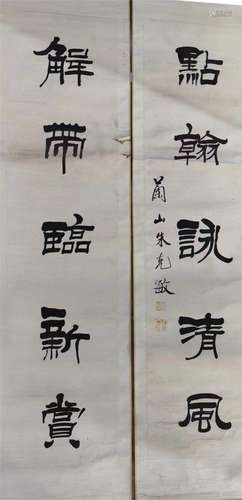 點翰詠清風
蕭山朱克敬
解帶臨新賞